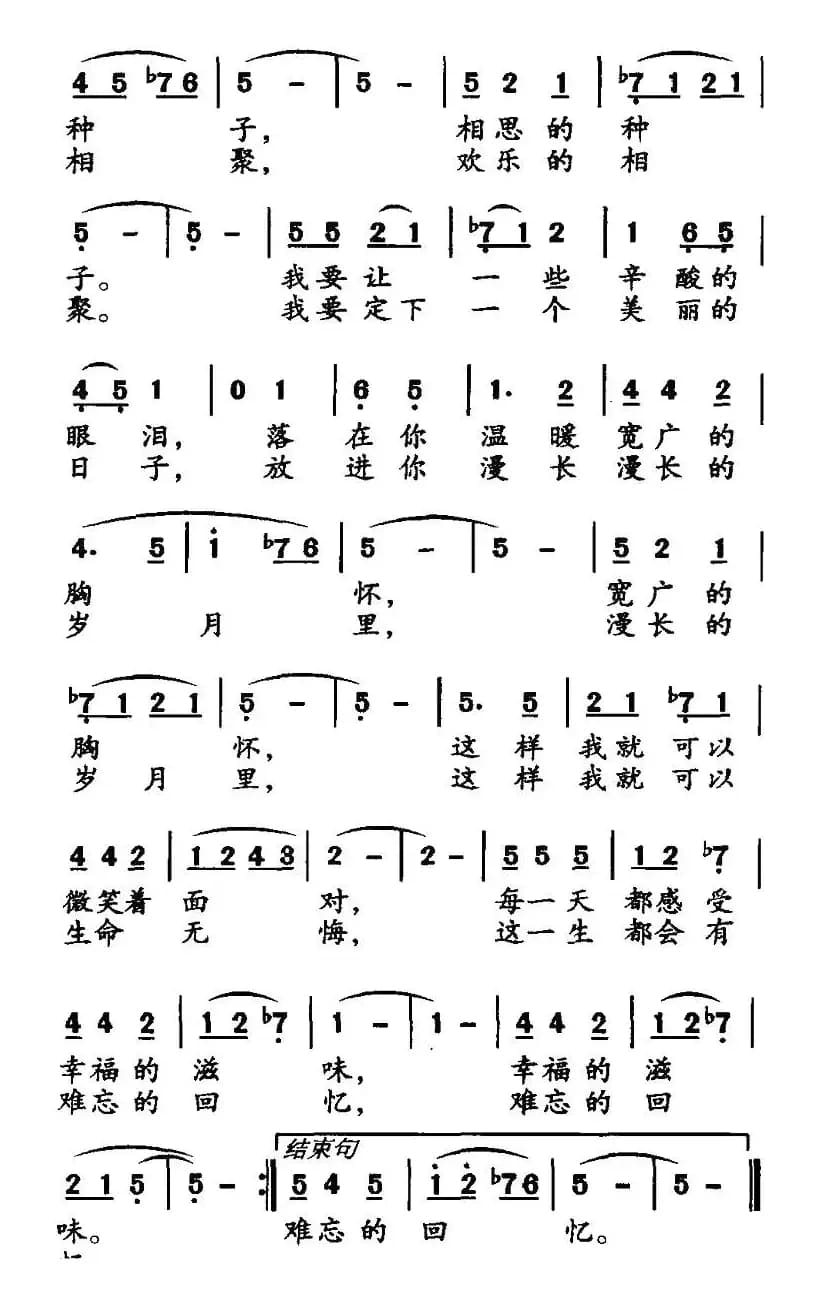 4 5 ♭7 6 | 5 - | 5 - | 5 2 1 | ♭7 1 2 1 |
种 子， 相思的 种
相 聚， 欢乐的 相
5 - | 5 - | 5 5 2 1 | ♭7 1 2 | 1 6 5 |
子。 我要让 一些 辛酸的
聚。 我要定下 一个 美丽的
4 5 1 | 0 1 | 6 5 | 1. 2 | 4 4 2 |
眼 泪， 落 在你 温暖 宽广的
日 子， 放 进你 漫长 漫长的
4. 5 | i ♭7 6 | 5 - | 5 - | 5 2 1 |
胸 怀， 宽广的
岁 月 里， 漫长的
♭7 1 2 1 | 5 - | 5 - | 5. 5 | 2 1 ♭7 1 |
胸 怀， 这样 我就可以
岁 月 里， 这样 我就可以
4 4 2 | 1 2 4 3 | 2 - | 2 - | 5 5 5 | 1 2 ♭7 |
微笑着 面 对， 每一天 都感受
生命 无 悔， 这一生 都会有
4 4 2 | 1 2 ♭7 | 1 - | 1 - | 4 4 2 | 1 2 ♭7 |
幸福的 滋 味， 幸福的 滋
难忘的 回 忆， 难忘的 回
结束句
2 1 5 | 5 - :‖ 5 4 5 | i 2̇ ♭7 6 | 5 - | 5 - ‖
味。 难忘的 回 忆。